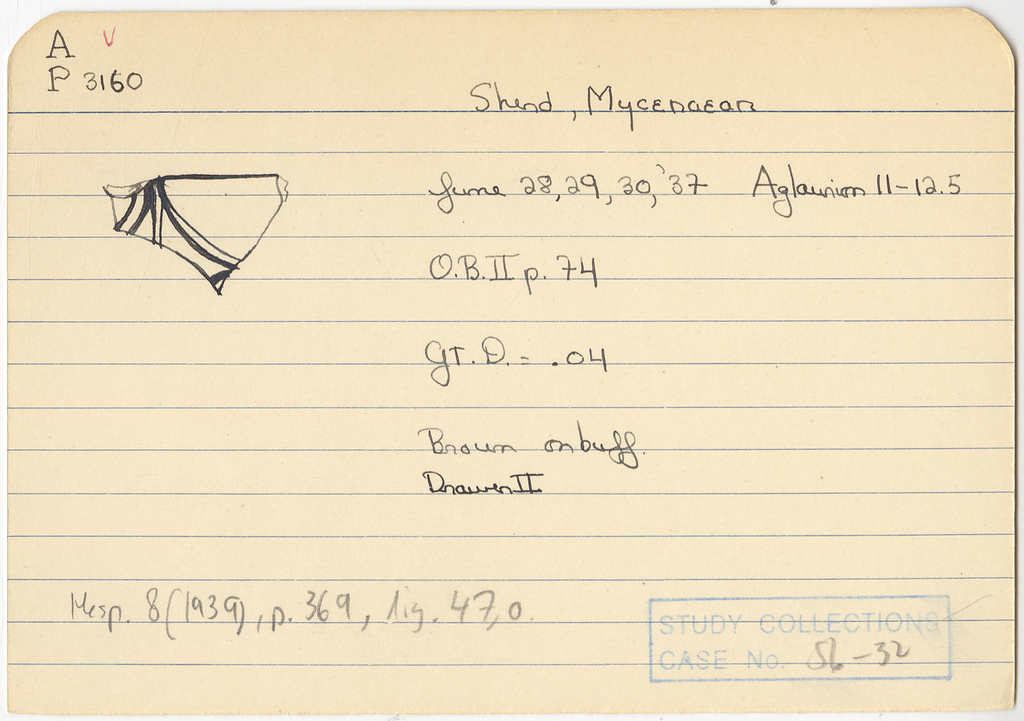 A V
P 3160
Sherd, Mycenaean
June 28, 29, 30, '37 Aglaurion 11-12.5
O.B. II p. 74
GT. D. = .04
Brown on buff.
Drawer II
Hesp. 8 (1939), p. 369, fig. 47, o.
STUDY COLLECTIONS
CASE No. 56-32